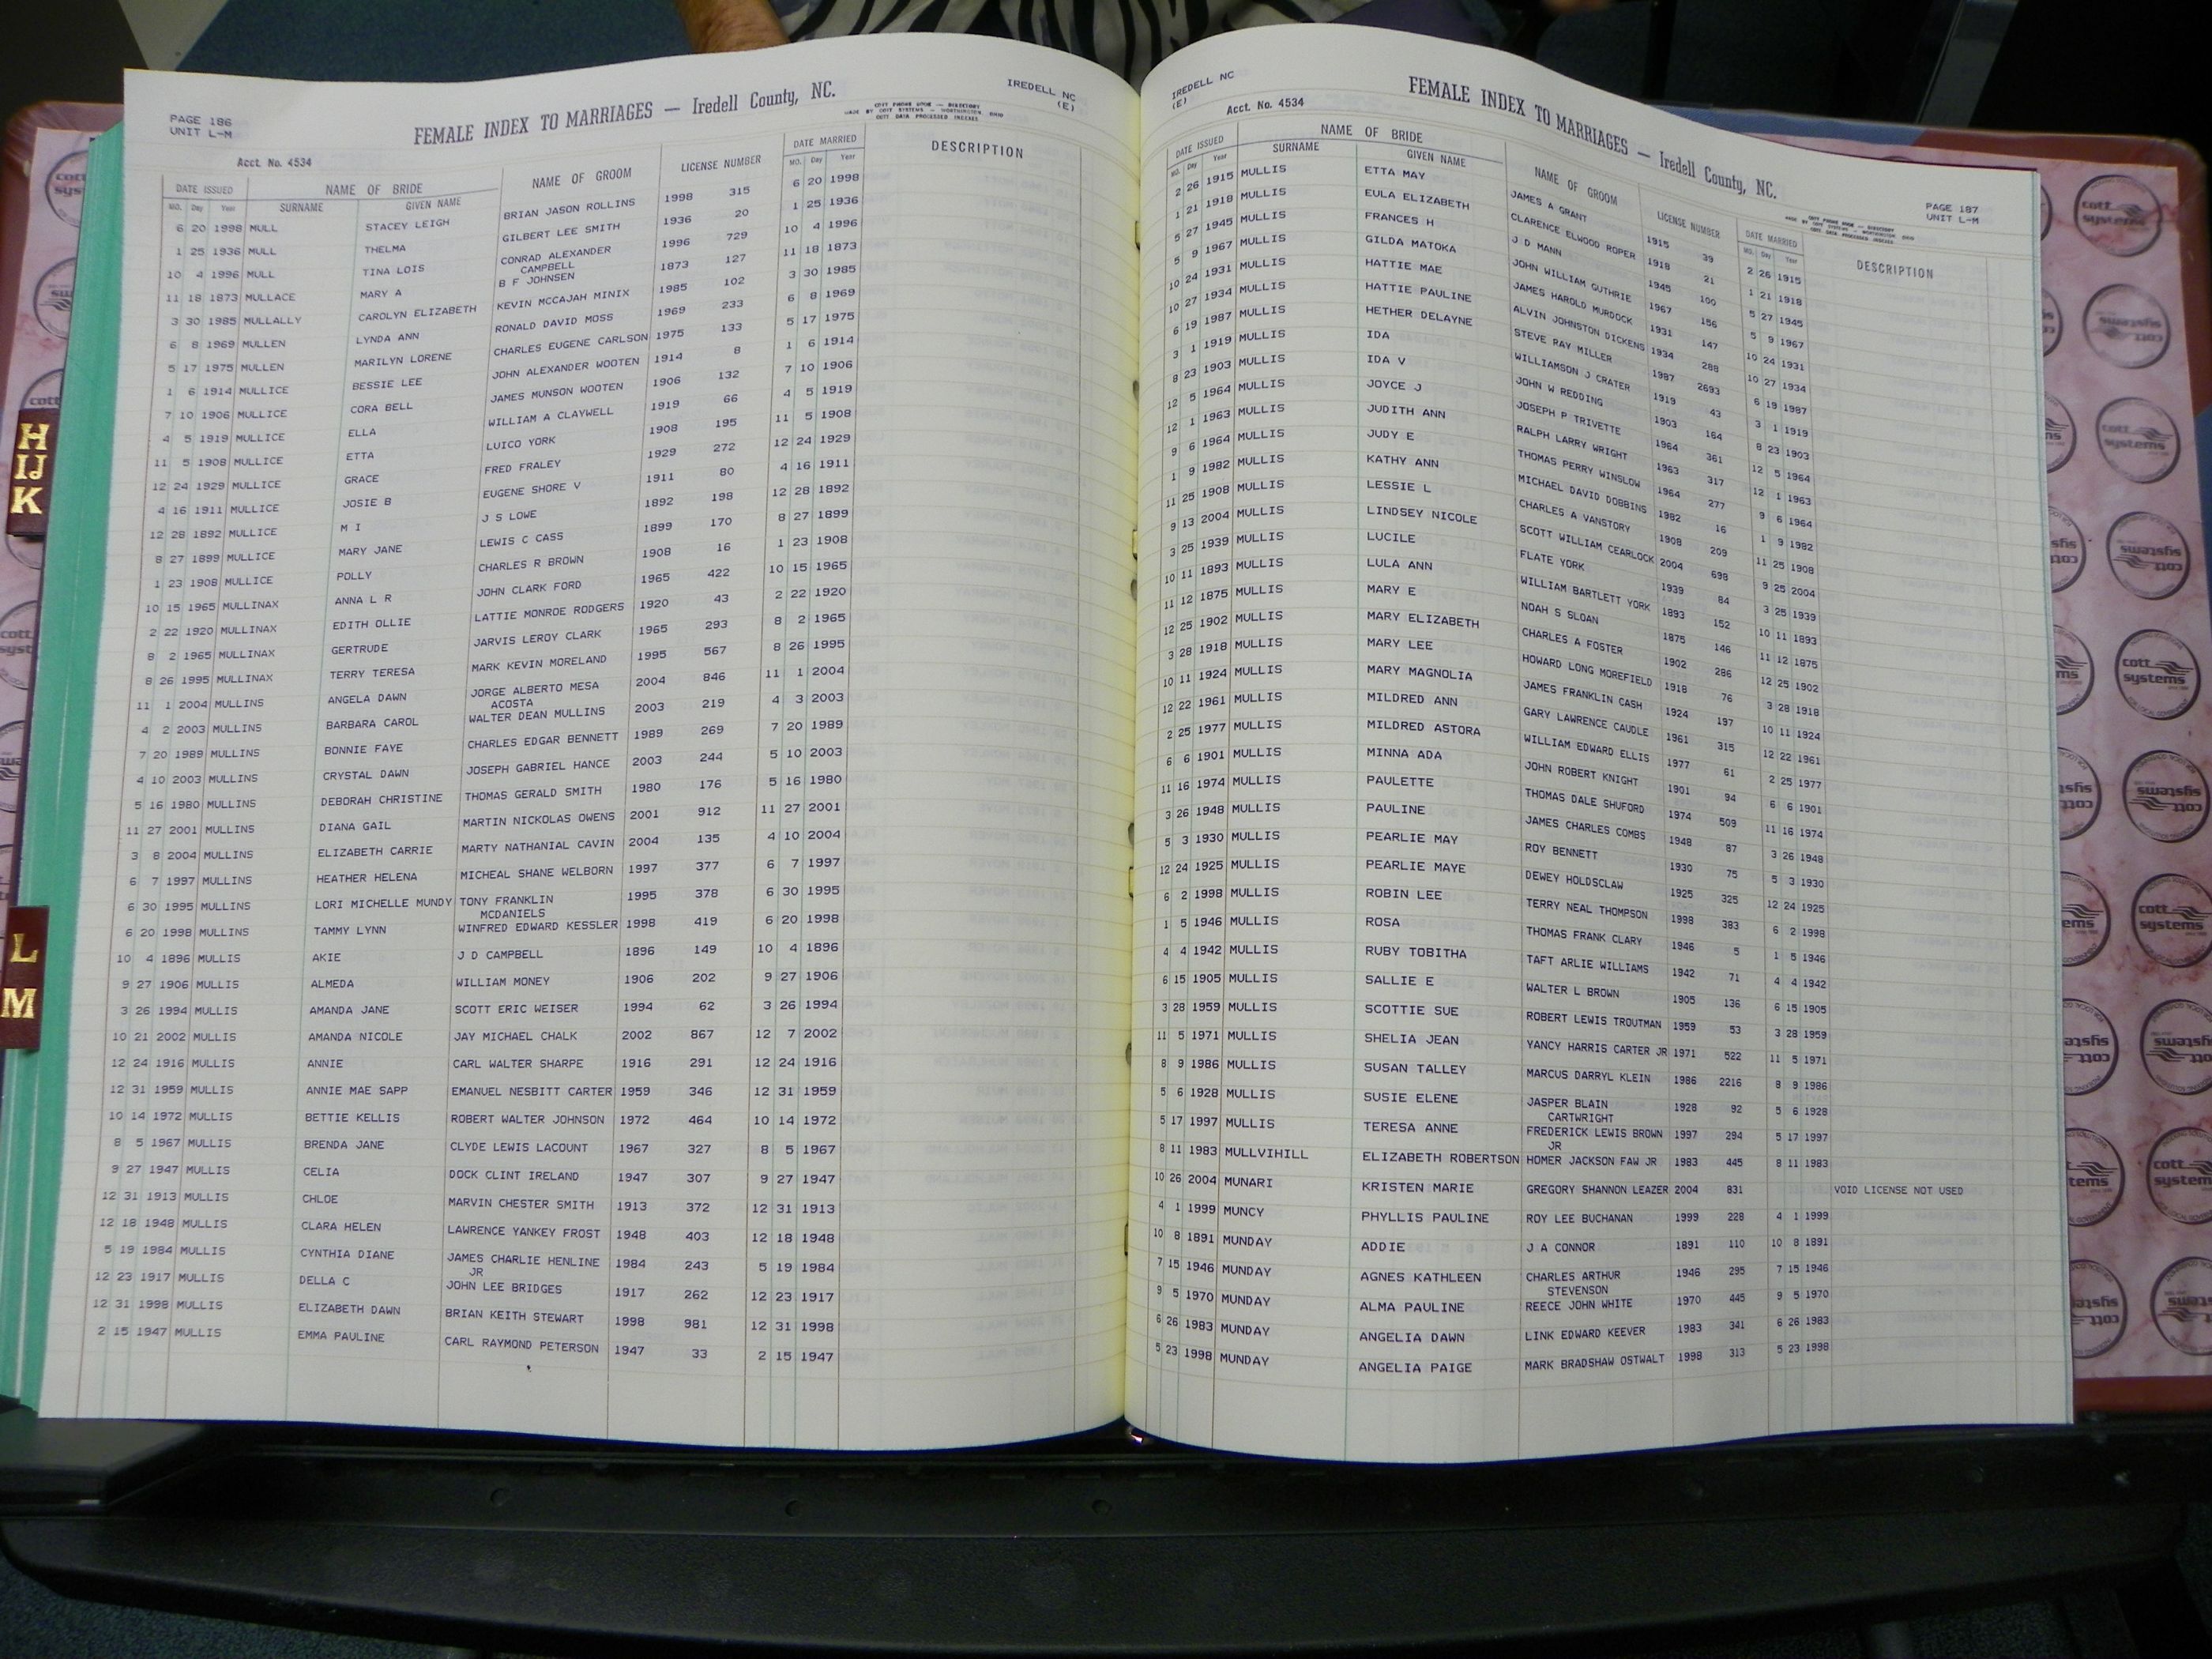 PAGE 186
UNIT L-M
FEMALE INDEX TO MARRIAGES — Iredell County, NC.
IREDELL NC
(E)
COTT PHONE BOOK — DIRECTORY
MADE BY COTT SYSTEMS — WORTHINGTON, OHIO
COTT DATA PROCESSED INDEXES
Acct. No. 4534
DATE ISSUED NAME OF BRIDE NAME OF GROOM LICENSE NUMBER DATE MARRIED DESCRIPTION
MO. Day Year SURNAME GIVEN NAME MO. Day Year
6 20 1998 MULL STACEY LEIGH BRIAN JASON ROLLINS 1998 315 6 20 1998
1 25 1936 MULL THELMA GILBERT LEE SMITH 1936 20 1 25 1936
10 4 1996 MULL TINA LOIS CONRAD ALEXANDER 1996 729 10 4 1996
CAMPBELL
11 18 1873 MULLACE MARY A B F JOHNSEN 1873 127 11 18 1873
3 30 1985 MULLALLY CAROLYN ELIZABETH KEVIN MCCAJAH MINIX 1985 102 3 30 1985
6 8 1969 MULLEN LYNDA ANN RONALD DAVID MOSS 1969 233 6 8 1969
5 17 1975 MULLEN MARILYN LORENE CHARLES EUGENE CARLSON 1975 133 5 17 1975
1 6 1914 MULLICE BESSIE LEE JOHN ALEXANDER WOOTEN 1914 8 1 6 1914
7 10 1906 MULLICE CORA BELL JAMES MUNSON WOOTEN 1906 132 7 10 1906
4 5 1919 MULLICE ELLA WILLIAM A CLAYWELL 1919 66 4 5 1919
11 5 1908 MULLICE ETTA LUICO YORK 1908 195 11 5 1908
12 24 1929 MULLICE GRACE FRED FRALEY 1929 272 12 24 1929
4 16 1911 MULLICE JOSIE B EUGENE SHORE V 1911 80 4 16 1911
12 28 1892 MULLICE M I J S LOWE 1892 198 12 28 1892
8 27 1899 MULLICE MARY JANE LEWIS C CASS 1899 170 8 27 1899
1 23 1908 MULLICE POLLY CHARLES R BROWN 1908 16 1 23 1908
10 15 1965 MULLINAX ANNA L R JOHN CLARK FORD 1965 422 10 15 1965
2 22 1920 MULLINAX EDITH OLLIE LATTIE MONROE RODGERS 1920 43 2 22 1920
8 2 1965 MULLINAX GERTRUDE JARVIS LEROY CLARK 1965 293 8 2 1965
8 26 1995 MULLINAX TERRY TERESA MARK KEVIN MORELAND 1995 567 8 26 1995
11 1 2004 MULLINS ANGELA DAWN JORGE ALBERTO MESA 2004 846 11 1 2004
ACOSTA
4 2 2003 MULLINS BARBARA CAROL WALTER DEAN MULLINS 2003 219 4 3 2003
7 20 1989 MULLINS BONNIE FAYE CHARLES EDGAR BENNETT 1989 269 7 20 1989
4 10 2003 MULLINS CRYSTAL DAWN JOSEPH GABRIEL HANCE 2003 244 5 10 2003
5 16 1980 MULLINS DEBORAH CHRISTINE THOMAS GERALD SMITH 1980 176 5 16 1980
11 27 2001 MULLINS DIANA GAIL MARTIN NICKOLAS OWENS 2001 912 11 27 2001
3 8 2004 MULLINS ELIZABETH CARRIE MARTY NATHANIAL CAVIN 2004 135 4 10 2004
6 7 1997 MULLINS HEATHER HELENA MICHEAL SHANE WELBORN 1997 377 6 7 1997
6 30 1995 MULLINS LORI MICHELLE MUNDY TONY FRANKLIN 1995 378 6 30 1995
MCDANIELS
6 20 1998 MULLINS TAMMY LYNN WINFRED EDWARD KESSLER 1998 419 6 20 1998
10 4 1896 MULLIS AKIE J D CAMPBELL 1896 149 10 4 1896
9 27 1906 MULLIS ALMEDA WILLIAM MONEY 1906 202 9 27 1906
3 26 1994 MULLIS AMANDA JANE SCOTT ERIC WEISER 1994 62 3 26 1994
10 21 2002 MULLIS AMANDA NICOLE JAY MICHAEL CHALK 2002 867 12 7 2002
12 24 1916 MULLIS ANNIE CARL WALTER SHARPE 1916 291 12 24 1916
12 31 1959 MULLIS ANNIE MAE SAPP EMANUEL NESBITT CARTER 1959 346 12 31 1959
10 14 1972 MULLIS BETTIE KELLIS ROBERT WALTER JOHNSON 1972 464 10 14 1972
8 5 1967 MULLIS BRENDA JANE CLYDE LEWIS LACOUNT 1967 327 8 5 1967
9 27 1947 MULLIS CELIA DOCK CLINT IRELAND 1947 307 9 27 1947
12 31 1913 MULLIS CHLOE MARVIN CHESTER SMITH 1913 372 12 31 1913
12 18 1948 MULLIS CLARA HELEN LAWRENCE YANKEY FROST 1948 403 12 18 1948
5 19 1984 MULLIS CYNTHIA DIANE JAMES CHARLIE HENLINE 1984 243 5 19 1984
JR
12 23 1917 MULLIS DELLA C JOHN LEE BRIDGES 1917 262 12 23 1917
12 31 1998 MULLIS ELIZABETH DAWN BRIAN KEITH STEWART 1998 981 12 31 1998
2 15 1947 MULLIS EMMA PAULINE CARL RAYMOND PETERSON 1947 33 2 15 1947
IREDELL NC
(E)
FEMALE INDEX TO MARRIAGES — Iredell County, NC.
PAGE 187
UNIT L-M
Acct. No. 4534
COTT PHONE BOOK — DIRECTORY
MADE BY COTT SYSTEMS — WORTHINGTON, OHIO
COTT DATA PROCESSED INDEXES
DATE ISSUED NAME OF BRIDE NAME OF GROOM LICENSE NUMBER DATE MARRIED DESCRIPTION
MO. Day Year SURNAME GIVEN NAME MO. Day Year
2 26 1915 MULLIS ETTA MAY JAMES A GRANT 1915 39 2 26 1915
1 21 1918 MULLIS EULA ELIZABETH CLARENCE ELWOOD ROPER 1918 21 1 21 1918
5 27 1945 MULLIS FRANCES H J D MANN 1945 100 5 27 1945
5 9 1967 MULLIS GILDA MATOKA JOHN WILLIAM GUTHRIE 1967 156 5 9 1967
10 24 1931 MULLIS HATTIE MAE JAMES HAROLD MURDOCK 1931 147 10 24 1931
10 27 1934 MULLIS HATTIE PAULINE ALVIN JOHNSTON DICKENS 1934 288 10 27 1934
6 19 1987 MULLIS HETHER DELAYNE STEVE RAY MILLER 1987 2693 6 19 1987
3 1 1919 MULLIS IDA WILLIAMSON J CRATER 1919 43 3 1 1919
8 23 1903 MULLIS IDA V JOHN W REDDING 1903 164 8 23 1903
12 5 1964 MULLIS JOYCE J JOSEPH P TRIVETTE 1964 361 12 5 1964
12 1 1963 MULLIS JUDITH ANN RALPH LARRY WRIGHT 1963 317 12 1 1963
9 6 1964 MULLIS JUDY E THOMAS PERRY WINSLOW 1964 277 9 6 1964
1 9 1982 MULLIS KATHY ANN MICHAEL DAVID DOBBINS 1982 16 1 9 1982
11 25 1908 MULLIS LESSIE L CHARLES A VANSTORY 1908 209 11 25 1908
9 13 2004 MULLIS LINDSEY NICOLE SCOTT WILLIAM CEARLOCK 2004 698 9 25 2004
3 25 1939 MULLIS LUCILE FLATE YORK 1939 84 3 25 1939
10 11 1893 MULLIS LULA ANN WILLIAM BARTLETT YORK 1893 152 10 11 1893
11 12 1875 MULLIS MARY E NOAH S SLOAN 1875 146 11 12 1875
12 25 1902 MULLIS MARY ELIZABETH CHARLES A FOSTER 1902 286 12 25 1902
3 28 1918 MULLIS MARY LEE HOWARD LONG MOREFIELD 1918 76 3 28 1918
10 11 1924 MULLIS MARY MAGNOLIA JAMES FRANKLIN CASH 1924 197 10 11 1924
12 22 1961 MULLIS MILDRED ANN GARY LAWRENCE CAUDLE 1961 315 12 22 1961
2 25 1977 MULLIS MILDRED ASTORA WILLIAM EDWARD ELLIS 1977 61 2 25 1977
6 6 1901 MULLIS MINNA ADA JOHN ROBERT KNIGHT 1901 94 6 6 1901
11 16 1974 MULLIS PAULETTE THOMAS DALE SHUFORD 1974 509 11 16 1974
3 26 1948 MULLIS PAULINE JAMES CHARLES COMBS 1948 87 3 26 1948
5 3 1930 MULLIS PEARLIE MAY ROY BENNETT 1930 75 5 3 1930
12 24 1925 MULLIS PEARLIE MAYE DEWEY HOLDSCLAW 1925 325 12 24 1925
6 2 1998 MULLIS ROBIN LEE TERRY NEAL THOMPSON 1998 383 6 2 1998
1 5 1946 MULLIS ROSA THOMAS FRANK CLARY 1946 5 1 5 1946
4 4 1942 MULLIS RUBY TOBITHA TAFT ARLIE WILLIAMS 1942 71 4 4 1942
6 15 1905 MULLIS SALLIE E WALTER L BROWN 1905 136 6 15 1905
3 28 1959 MULLIS SCOTTIE SUE ROBERT LEWIS TROUTMAN 1959 53 3 28 1959
11 5 1971 MULLIS SHELIA JEAN YANCY HARRIS CARTER JR 1971 522 11 5 1971
8 9 1986 MULLIS SUSAN TALLEY MARCUS DARRYL KLEIN 1986 2216 8 9 1986
5 6 1928 MULLIS SUSIE ELENE JASPER BLAIN 1928 92 5 6 1928
CARTWRIGHT
5 17 1997 MULLIS TERESA ANNE FREDERICK LEWIS BROWN 1997 294 5 17 1997
JR
8 11 1983 MULLVIHILL ELIZABETH ROBERTSON HOMER JACKSON FAW JR 1983 445 8 11 1983
10 26 2004 MUNARI KRISTEN MARIE GREGORY SHANNON LEAZER 2004 831 VOID LICENSE NOT USED
4 1 1999 MUNCY PHYLLIS PAULINE ROY LEE BUCHANAN 1999 228 4 1 1999
10 8 1891 MUNDAY ADDIE J A CONNOR 1891 110 10 8 1891
7 15 1946 MUNDAY AGNES KATHLEEN CHARLES ARTHUR 1946 295 7 15 1946
STEVENSON
9 5 1970 MUNDAY ALMA PAULINE REECE JOHN WHITE 1970 445 9 5 1970
6 26 1983 MUNDAY ANGELIA DAWN LINK EDWARD KEEVER 1983 341 6 26 1983
5 23 1998 MUNDAY ANGELIA PAIGE MARK BRADSHAW OSTWALT 1998 313 5 23 1998
H
IJ
K
L
M
cott
systems